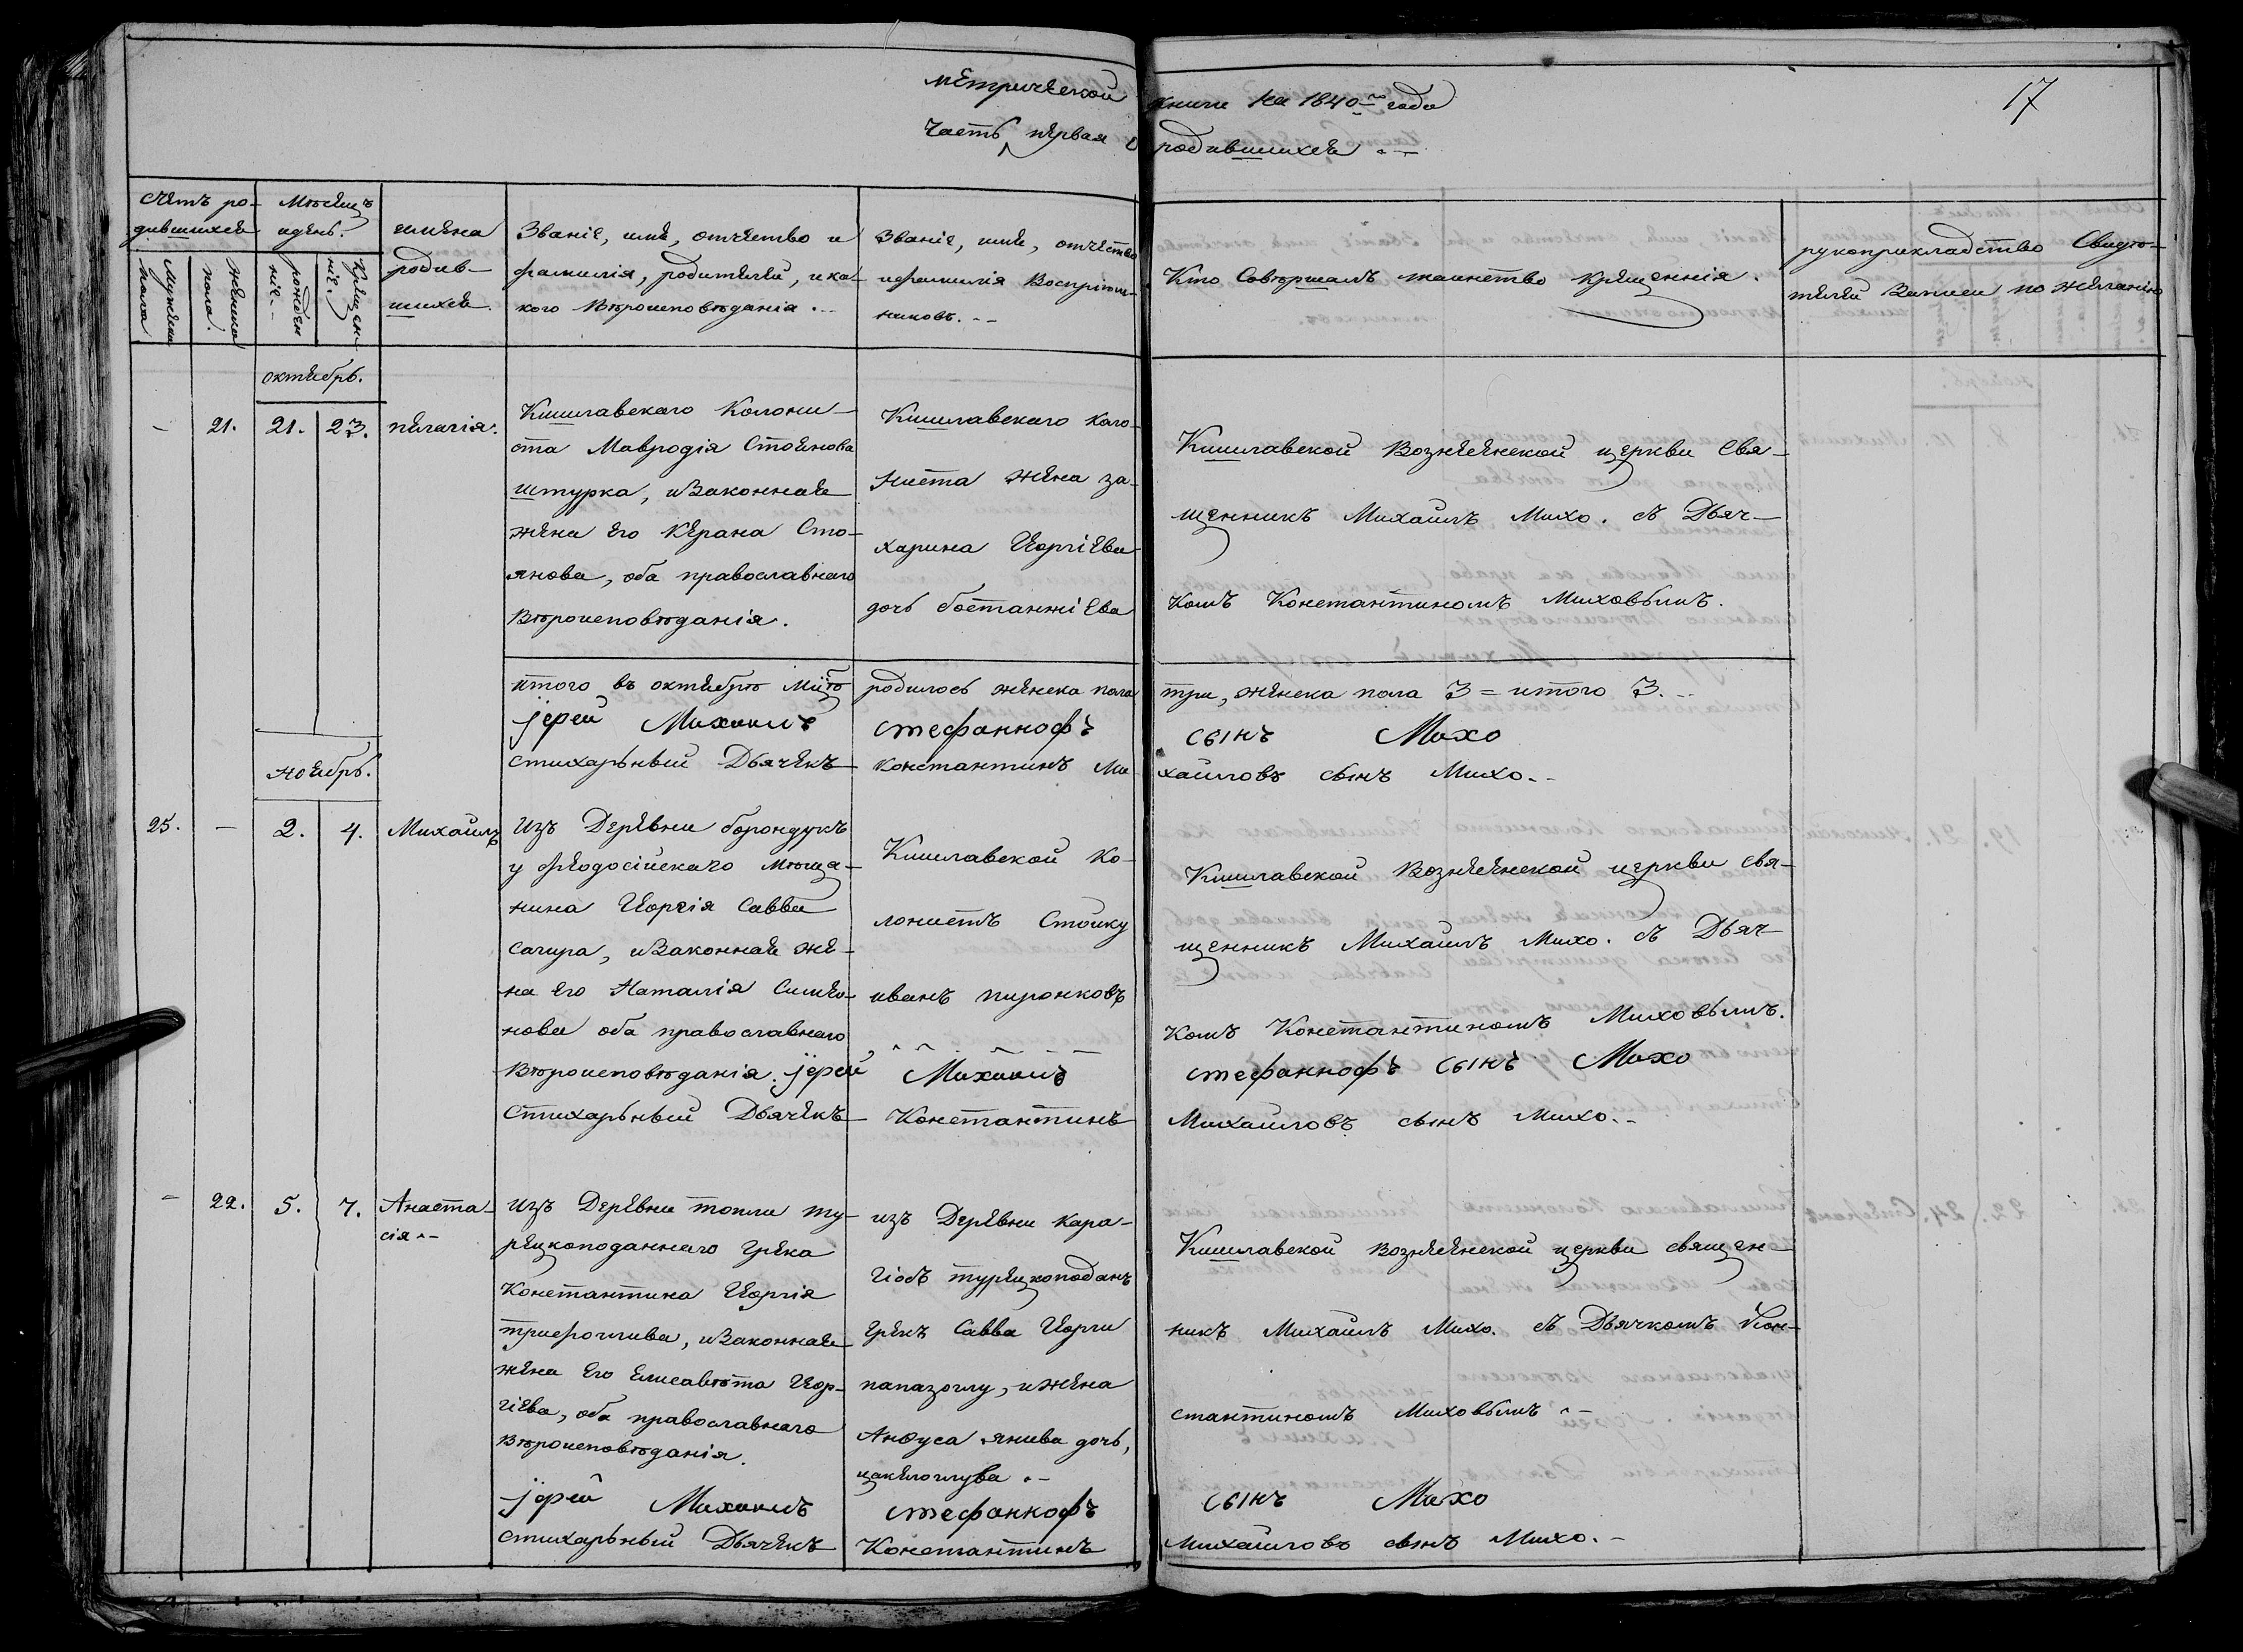 метрической книги на 1840-го года
17
Часть первая о родившихся
Счетъ ро-
дившихся
Мѣсяцъ
и день.
имена
родив-
шихся.
Званіе, имя, отчество и
фамилія, родителей, и ка-
кого Вѣроисповѣданія.
Званіе, имя, отчество
и фамилія Воспріем-
никовъ.
Кто Совѣршалъ таинство крещеннія.
рукоприкладство Свидѣ-
телей Записи по желанію
Мужеска
пола
женска
пола.
рожден
ніе
Крещен-
ніе.
октябрь.
-
21.
21.
23.
пелагія.
Кишлавскаго Колони-
ста Мавродія Стоянова
штурка, и Законная
жена Его Керана Сто-
янова, оба православнаго
Вѣроисповѣданія.
Кишлавскаго коло-
ниста жена за-
харина Георгіева
дочь бостанжіева
Кишлавской Вознесенской церкви Свя-
щенникъ Михаилъ Михо. съ Дьяч-
комъ Константиномъ Миховымъ.
итого въ октябрѣ м-цѣ родилось женска пола три, женска пола 3 = итого 3.
јерей Михаилъ стефанкофъ сынъ Михо
стихарьный Дьячекъ константинъ Ми-хайловъ сынъ Михо.
ноябрь.
25.
-
2.
4.
Михаилъ
Изъ Деревни борондукъ
у феодосійскаго мѣща-
нина Георгія Савва
сачира, и Законная же-
на Его Наталія Симео-
нова оба православнаго
Вѣроисповѣданія.
Кишлавской ко-
лонистъ Стойку
иванъ пиронковъ
Кишлавской Вознесенской церкви свя-
щенникъ Михаилъ Михо. съ Дьяч-
комъ Константиномъ Миховымъ.
јерей Михаилъ стефанкофъ сынъ Михо
Стихарьный Дьячекъ Константинъ Михаиловъ сынъ Михо.
-
22.
5.
7.
Анаста-
сія
изъ Деревни топли ту-
рецкоподаннаго грека
Константина Георгія
трифоглива, и Законная
жена Его Елисавѣта Геор-
гіева, оба православнаго
Вѣроисповѣданія.
изъ Деревни кара-
гіозъ турецкоподанъ
грекъ Савва Георги
папазоглу, и жена
янива дочь,
Кишлавской вознесенской церкви священ-
никъ Михаилъ Михо. съ Дьячкомъ Кон-
стантиномъ Миховымъ
јерей Михаилъ стефанкофъ сынъ Михо
стихарьный Дьячекъ Константинъ михайловъ сынъ Михо.